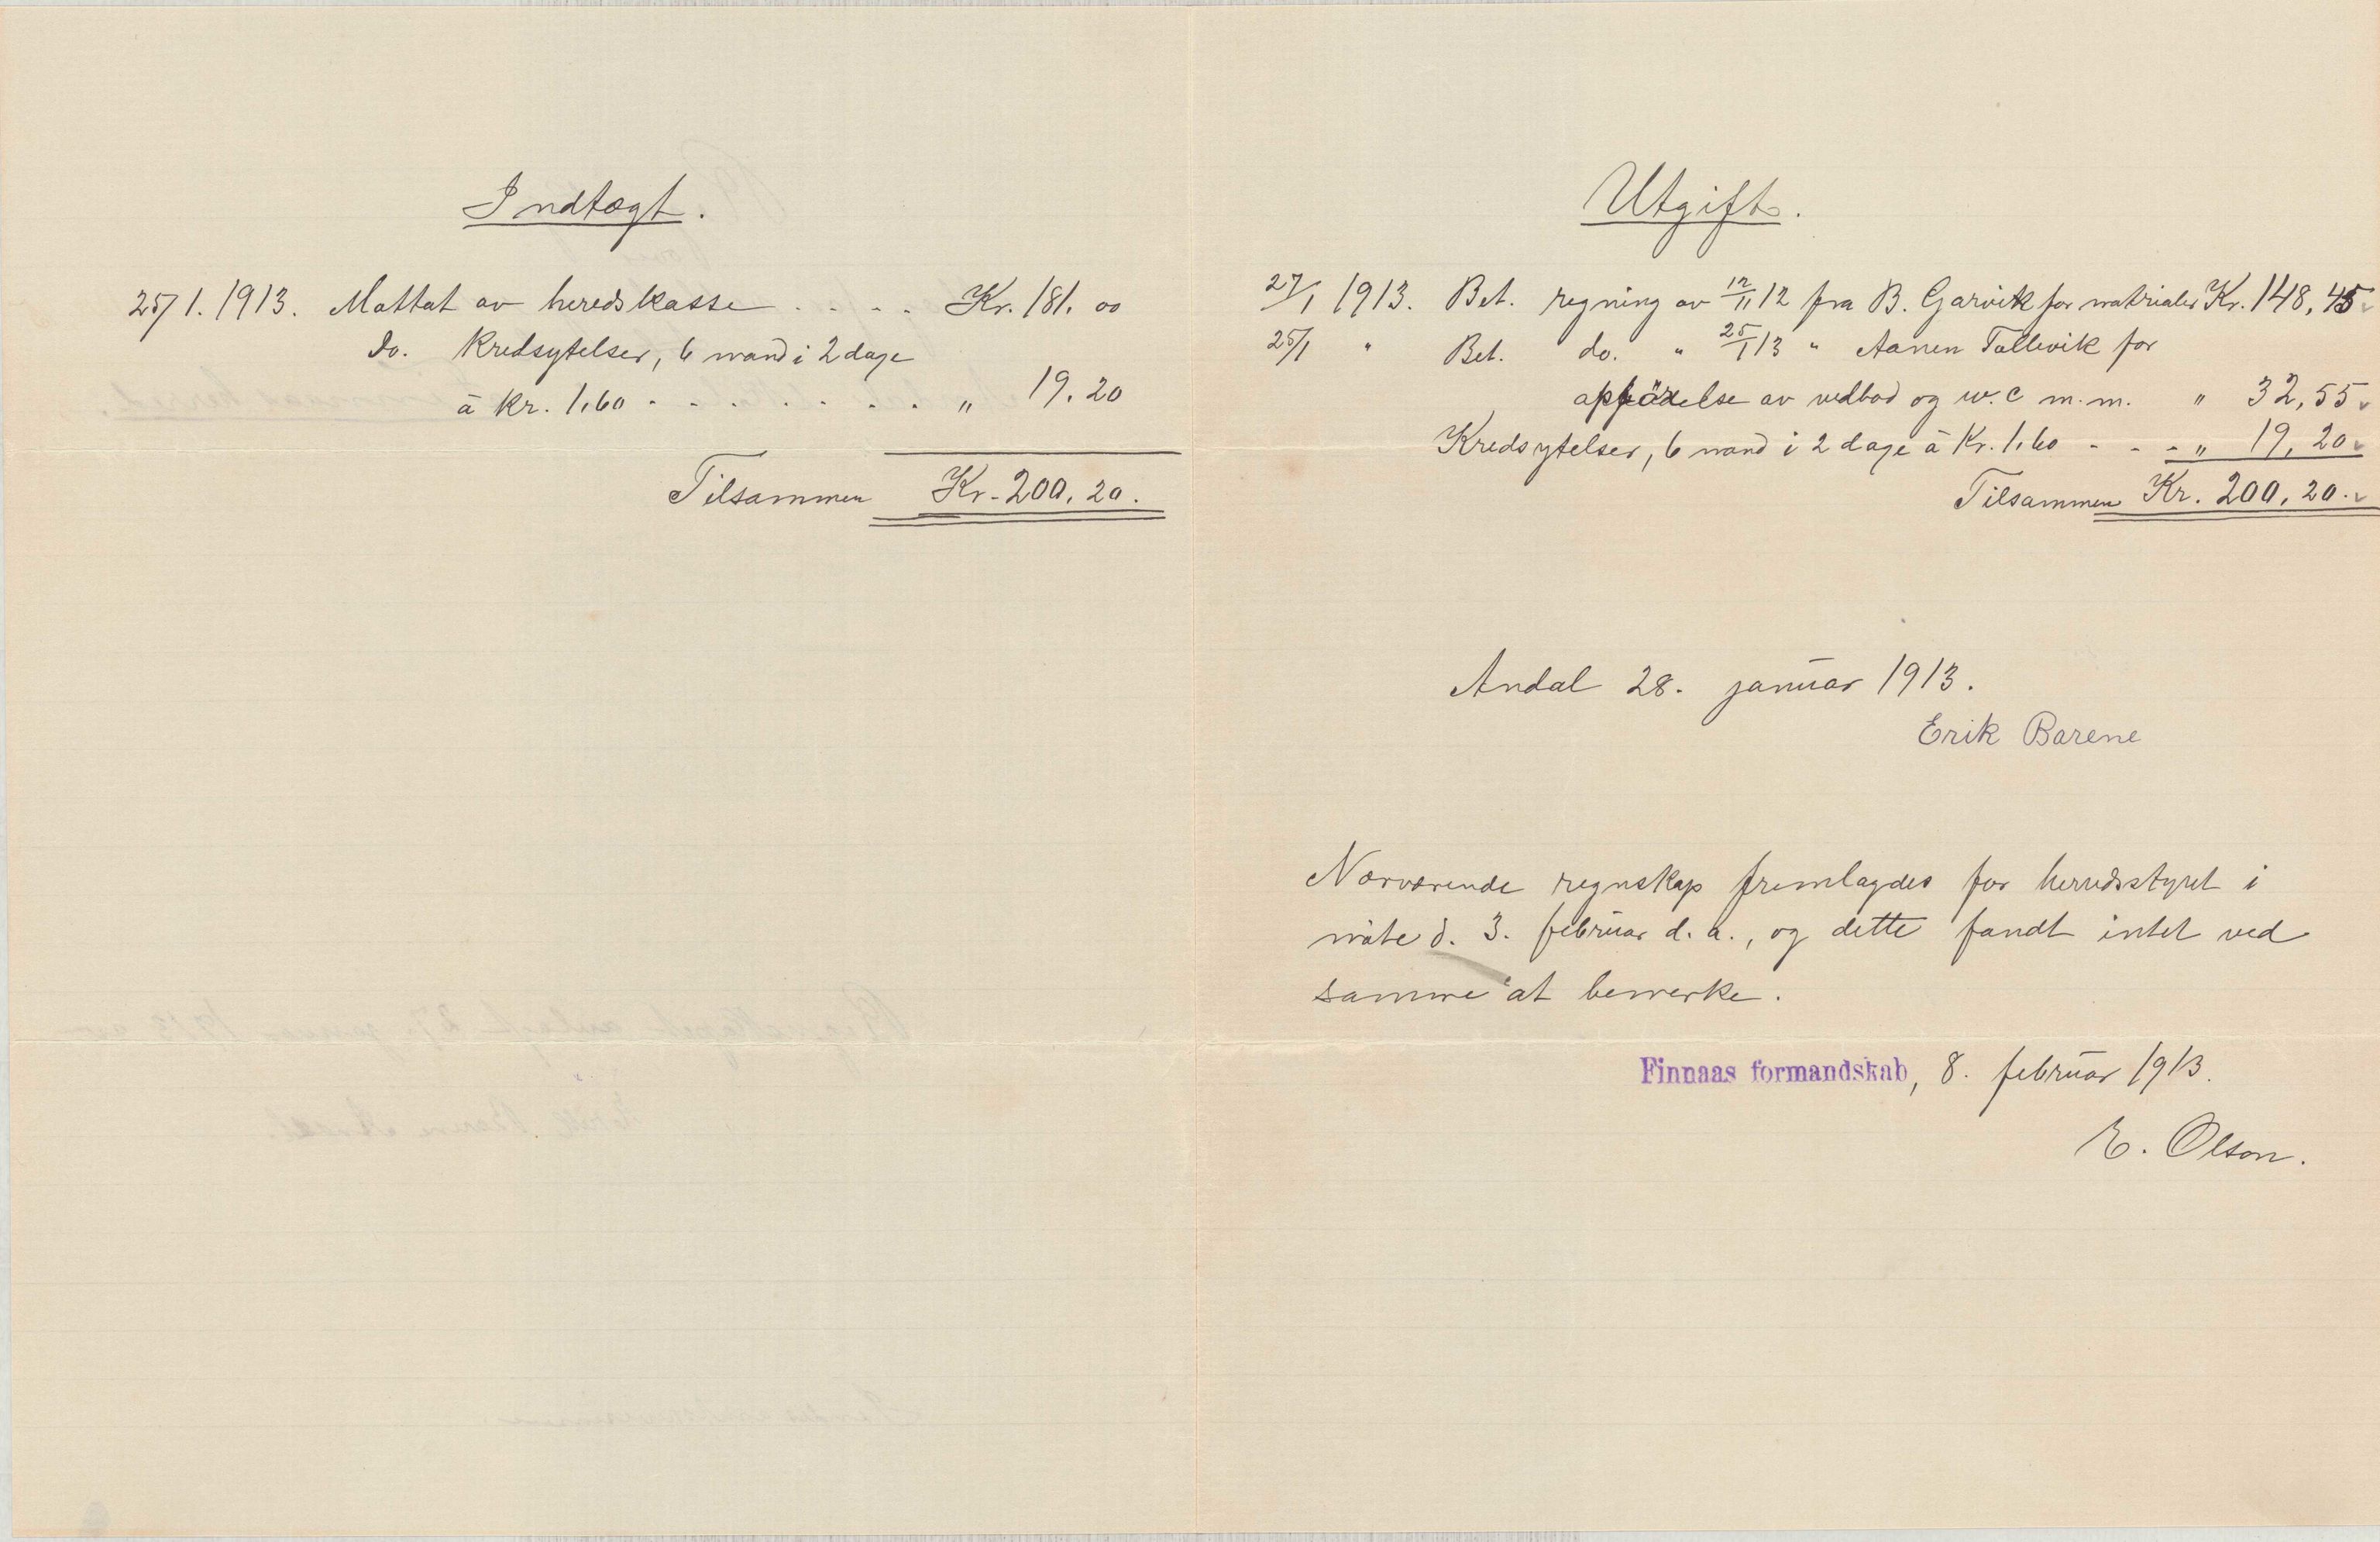 Indtægt.
25/1. 1913. Mottat av heredskasse . . . . Kr. 181. 00
do. Kredsytelser, 6 mand i 2 dage
à Kr. 1.60 - - - - - - - - " 19. 20
Tilsammen Kr. 200. 20.
Utgift.
27/1 1913. Bet. regning av 12/11 12 fra B. Garvik for matrialer Kr. 148, 45
25/1 " Bet. do. " 25/1 13 " Aanen Tollevik for
opförelse av vedbod og w. c m. m. " 32, 55
Kredsytelser, 6 mand i 2 dage à Kr. 1.60 - - - " 19, 20
Tilsammen Kr. 200, 20.
Andal 28. januar 1913.
Erik Barene
Nærværende regnskap fremlagdes for herredsstyret i
møte d. 3. februar d. a., og dette fandt intet ved
samme at bemerke.
Finnaas formandskab, 8. februar 1913.
E. Olson.